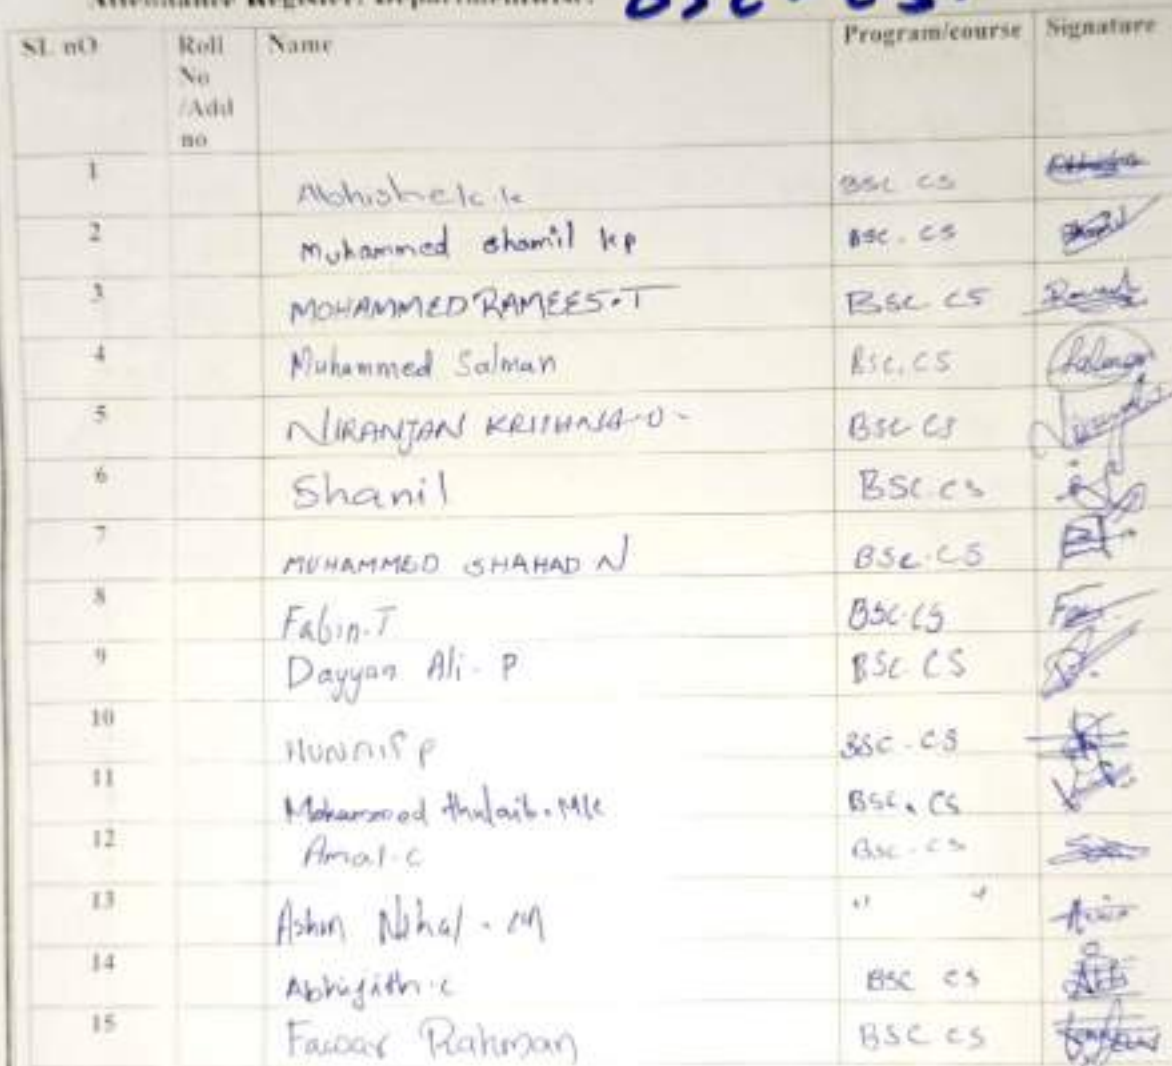 Attendance Register: Department BSC. CS.
SL nO Roll No /Add no Name Program/course Signature
1 Abhishek.k BSC CS
2 Muhammed shamil kp BSC. CS
3 MOHAMMED RAMEES.T BSC. CS
4 Muhammed Salman BSC. CS Salman
5 NIRANJAN KRISHNA BSC CS
6 Shanil BSC.CS
7 MUHAMMED SHAHAD N BSC.CS
8 Fabin.T BSC.CS
9 Dayyan Ali. P BSC CS
10 P BSC.CS
11 Mohammed thulaib.MK BSC. CS
12 Amal.C BSC.CS
13 Ashin Nihal. M ,, ,,
14 Abhijith.C BSC CS
15 Rahman BSC CS